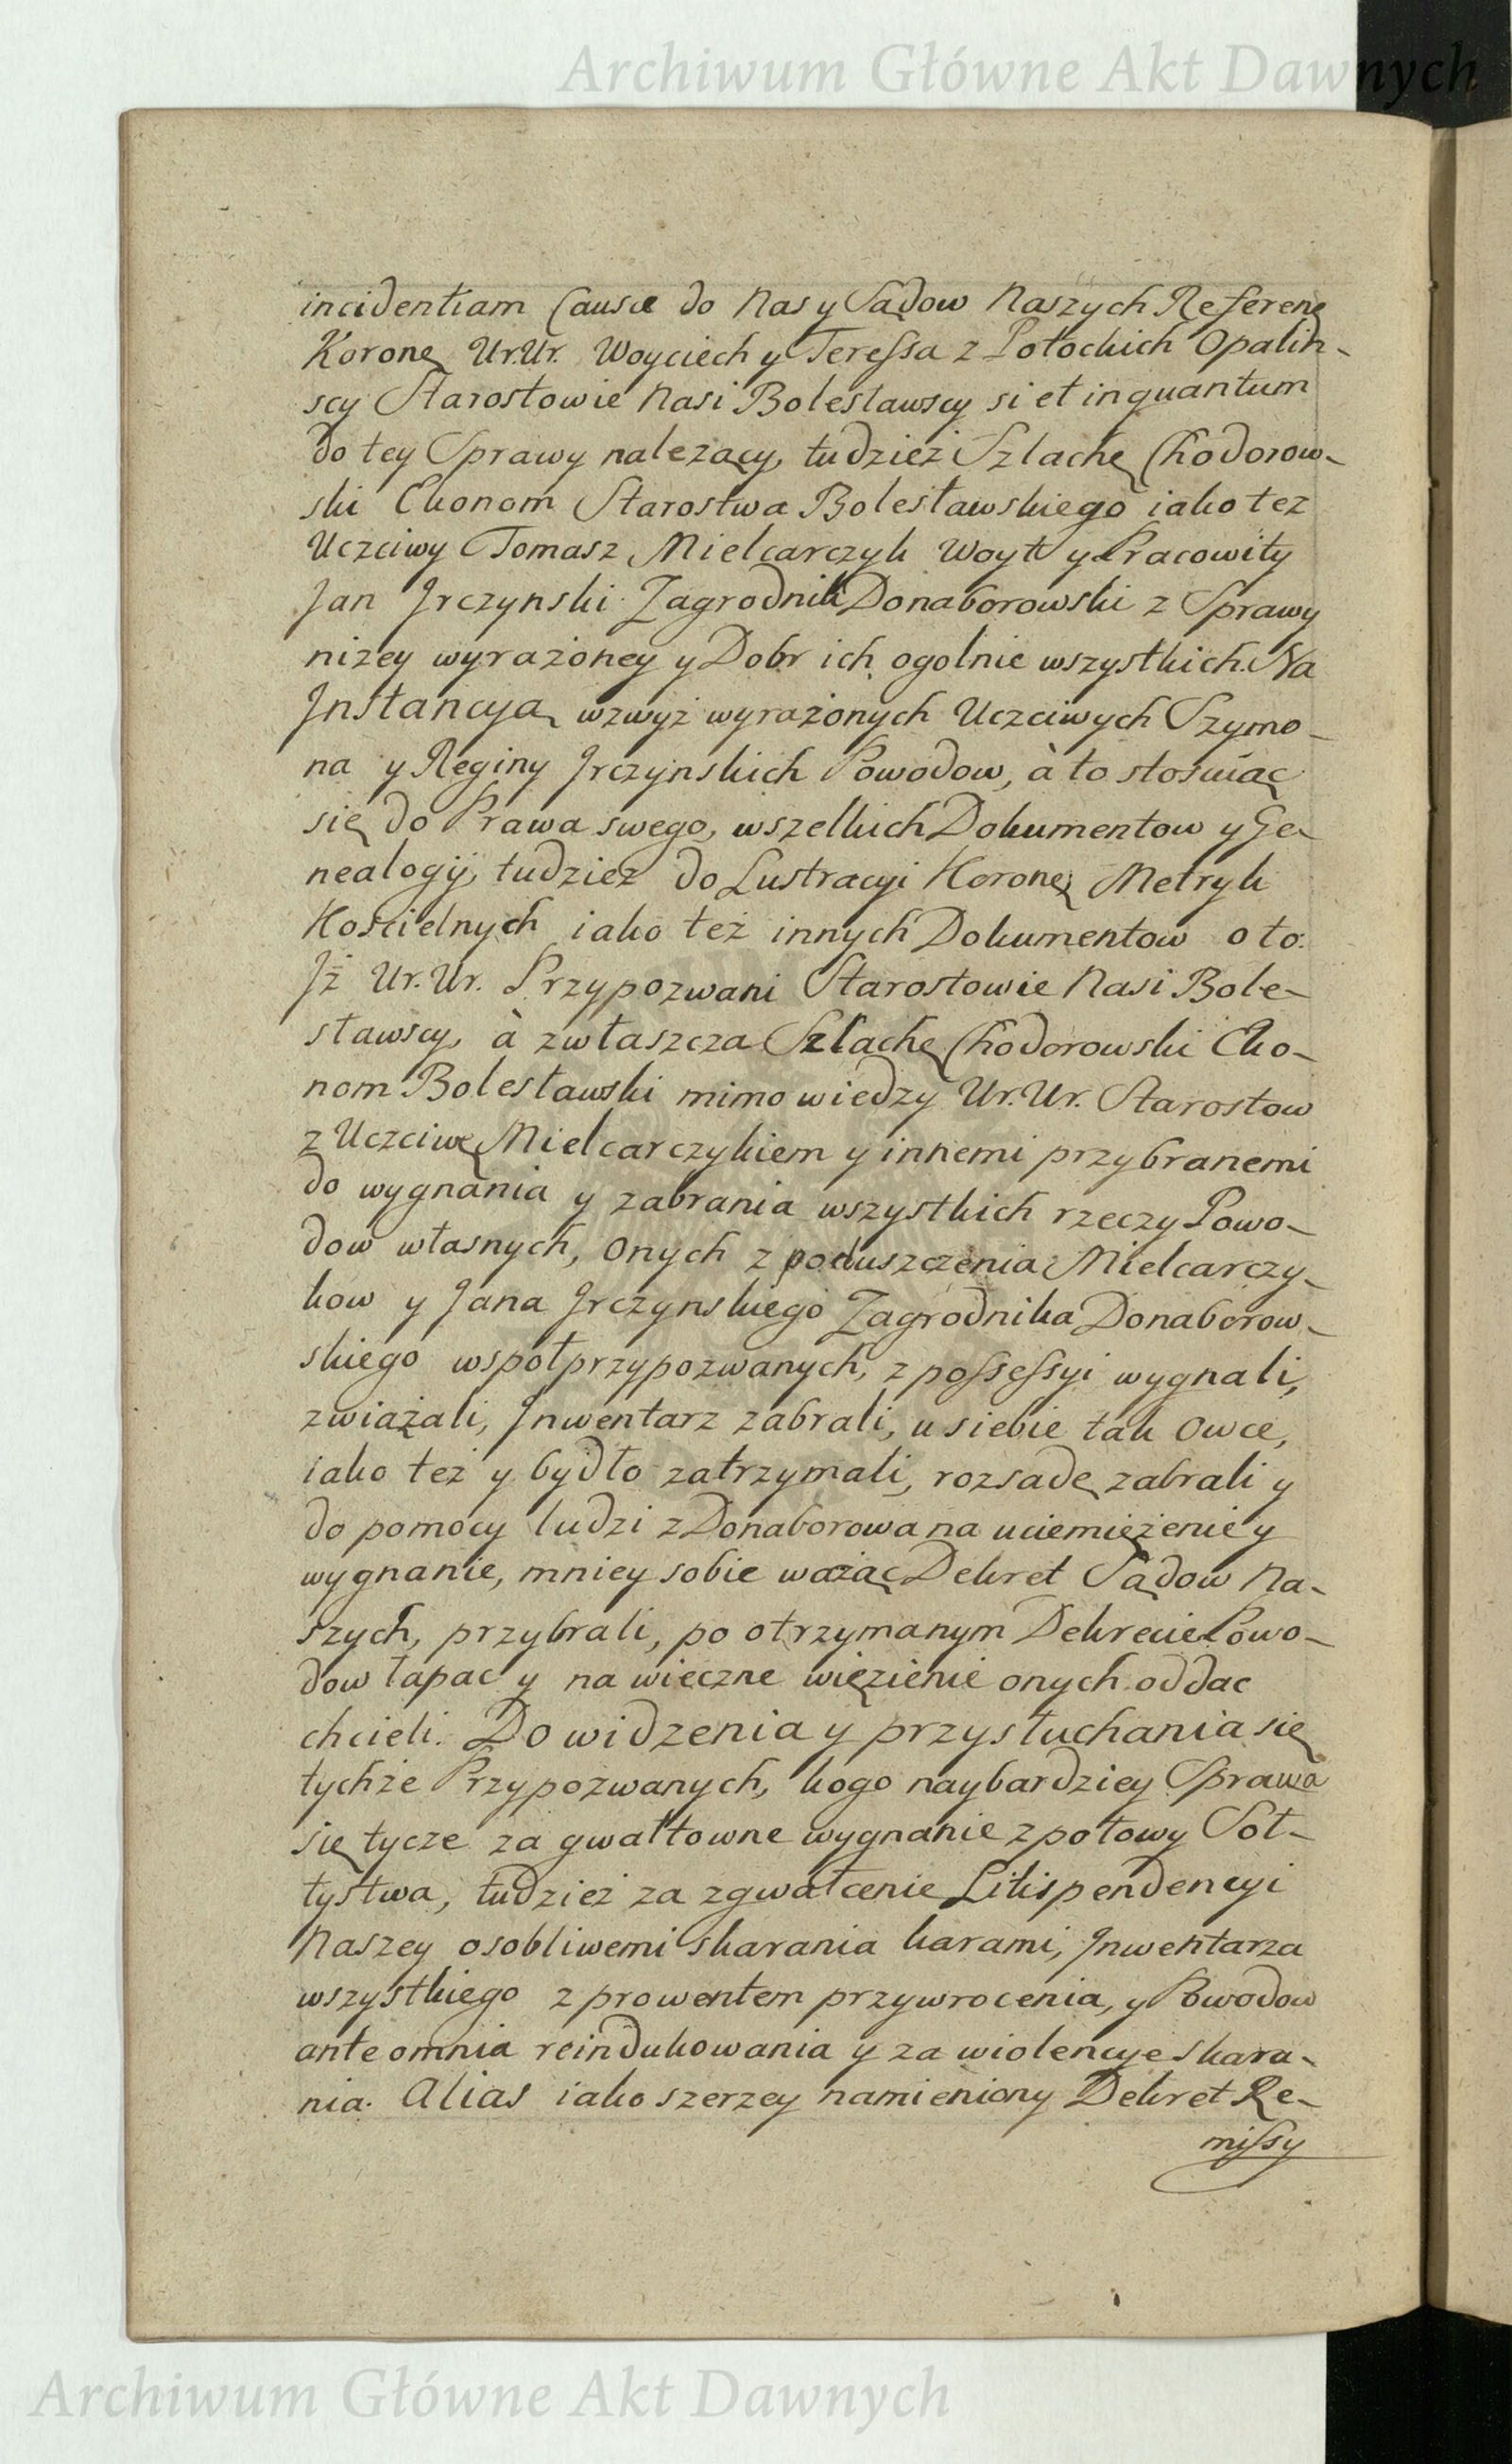 Archiwum Główne Akt Dawnych
incidentiam Causæ do Nas y Sądow Naszych Referenę
Koronę Ur.Ur. Woyciech y Teressa z Potockich Opalin-
scy Starostowie Nasi Bolesławscy si et inquantum
do tey Sprawy nalezący, tudzież Szlachę Chodorow-
ski Ekonom Starostwa Bolesławskiego iako tez
Uczciwy Tomasz Mielcarczyk Woyt y Pracowity
Jan Jrczynski Zagrodnik Donaborowski z Sprawy
nizey wyrażoney y Dobr ich ogolnie wszystkich. Na
Jnstancyą wzwyż wyrażonych Uczciwych Szymo-
na y Reginy Jrczynskich Powodow, à to stosuiąc
się do Prawa swego, wszelkich Dokumentow y Ge-
nealogij, tudziez do Lustracyi Koronę Metryk
Kościelnych iako też innych Dokumentow o to:
Jż Ur.Ur. Przypozwani Starostowie Nasi Bole-
sławscy, à zwłaszcza Szlachę Chodorowski Eko-
nom Bolesławski mimo wiedzy Ur.Ur. Starostow
z Uczciwę Mielcarczykiem y innemi przybranemi
do wygnania y zabrania wszystkich rzeczy Powo-
dow własnych, onych z poduszczenia Mielcarczy-
kow y Jana Jrczynskiego Zagrodnika Donaborow-
skiego wspołprzypozwanych, z possessyi wygnali,
zwiążali, Jnwentarz zabrali, u siebie tak owce,
iako też y bydło zatrzymali, rozsadę zabrali y
do pomocy ludzi z Donaborowa na uciemiężenie y
wygnanie, mniey sobie ważąc Dekret Sądow Na-
szych, przybrali, po otrzymanym Dekrecie Powo-
dow łapac y na wieczne więzienie onych oddac
chcieli. Do widzenia y przysłuchania się
tychże Przypozwanych, kogo naybardziey Sprawa
się tycze za gwałtowne wygnanie z połowy Soł-
tystwa, tudzież za zgwałcenie Litispendencyi
Naszey osobliwemi skarania karami, Jnwentarza
wszystkiego z prowentem przywrocenia, y Powodow
ante omnia reindukowania y za wiolencye skara-
nia. Alias iako szerzey namieniony Dekret Re-
missy
Archiwum Główne Akt Dawnych